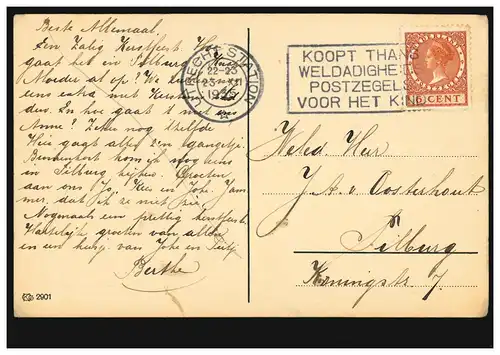 Beste Allemaal.
Een Zalig Kerstfeest. Hoe
gaat het in Tilburg? Kunt
Moeder al op?
eens extra met Kerst
den. En hoe gaat 't met
Anne? Zeker nog 't zelfde
Hier gaat alles z'n gangetje.
Binnenkort kom ik nog eens
in Tilburg kijken. Groeten
aan ons Jo, Kees en Joke. Jam
mer, dat ik ze niet
Nogmaals een prettig kerstfeest.
Hartelijke groeten van allen
en een kusje van Joke en
Berthe
2901
UTRECHT STATION
22-23
23 XII
192
KOOPT THANS
WELDADIGHE
POSTZEGELS
VOOR HET KIN
CENT
Weled. Heer
J. A. v. Oosterhout
Tilburg
Koningstr. 7.